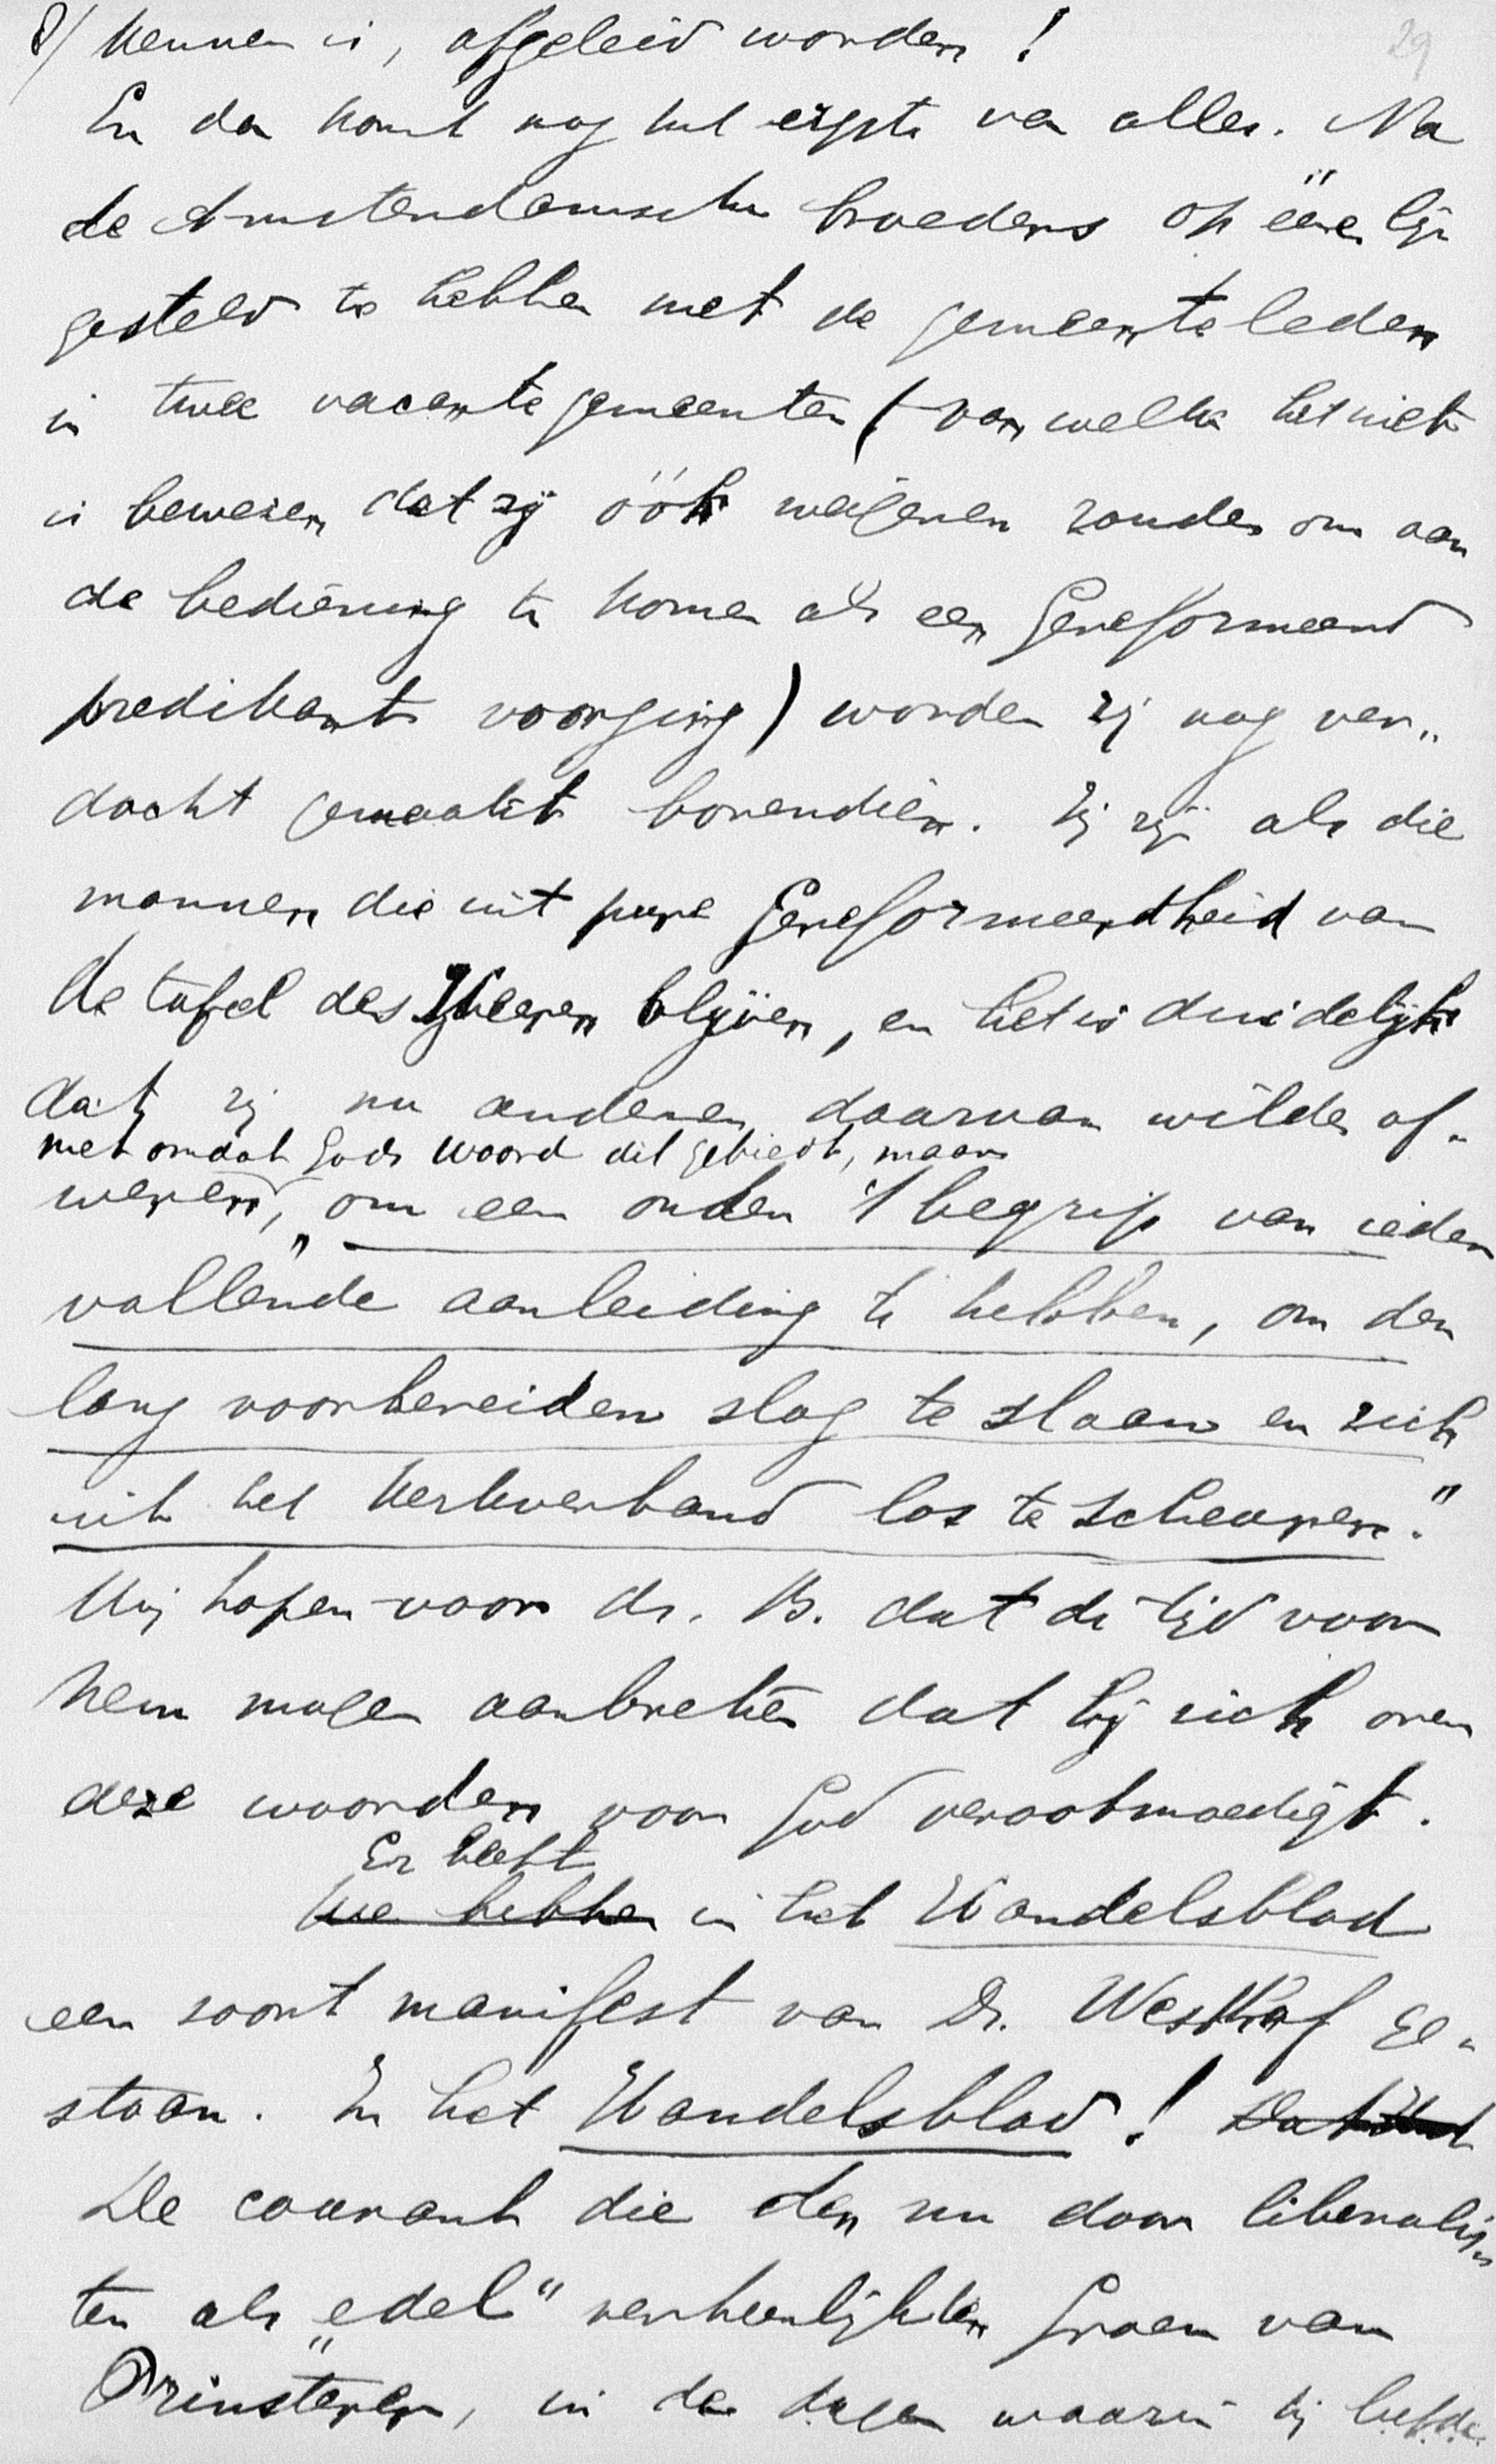 8/ kennen is, afgeleid worden! 29
En dan komt nog het ergste van alles. Na
de Amsterdamsche broeders op ééne lijn
gesteld te hebben met de gemeenteleden
in twee vacante gemeenten (van welke het niet
is bewezen dat zij óók weigeren zouden om aan
de bediening te komen als een Gereformeerd
predikant voorging) worden zij nog ver„
dacht gemaakt bovendien. Zij zijn als die
mannen die uit pure Gereformeerdheid van
de tafel des Heeren blijven, en het is duidelijk
dat zij nu anderen daarvan wilden af„
niet omdat Gods woord dit gebiedt, maar
weren, „om een onder 't begrip van ieder
vallende aanleiding te hebben, om den
lang voorbereiden slag te slaan en zich
uit het kerkverband los te scheuren."
Wij hopen voor dr. B. dat de tijd voor
hem moge aanbreken dat hij zich over
deze woorden voor God verootmoedigt.
Er heeft
We hebben in het Handelsblad
een soort manifest van Dr. Westhof ge„
staan. In het Handelsblad! Dat
De courant die den nu door liberalis„
ten als „edel" verheerlijkten Groen van
Prinsterer, in de dagen waarin hij leefde.